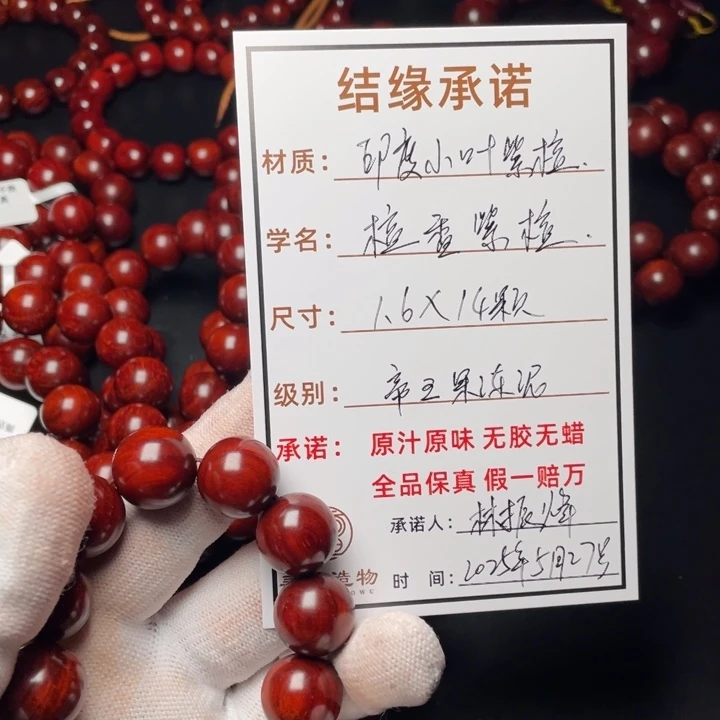 结缘承诺
材质：印度小叶紫檀.
学名：檀香紫檀.
尺寸：1.6×14颗
级别：帝王果冻泥
承诺：原汁原味 无胶无蜡
全品保真 假一赔万
承诺人：林振峰
造物 时 间：2025年5月27号